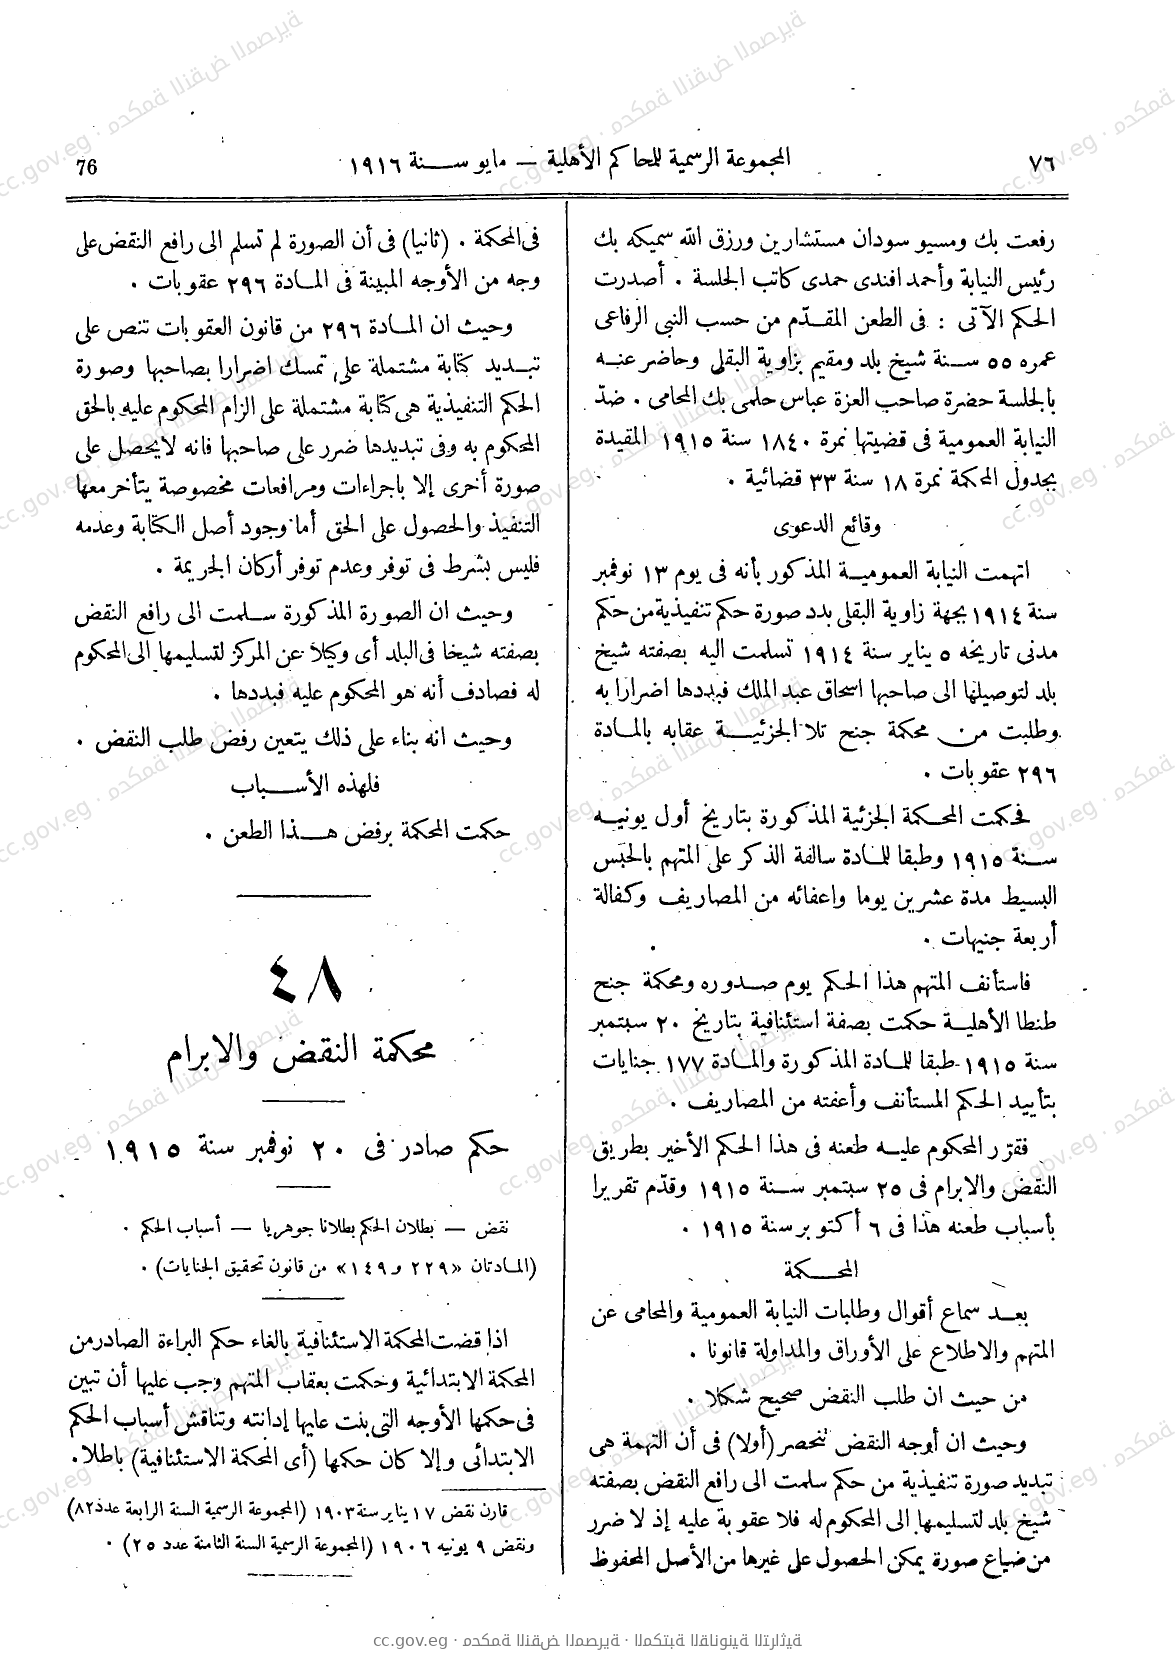 ٧٦
المجموعة الرسمية للمحاكم الأهلية — مايو سنة ١٩١٦
76
رفعت بك ومسيو سودان مستشارين ورزق الله سميكه بك
رئيس النيابة وأحمد افندى حمدى كاتب الجلسة . أصدرت
الحكم الآتى : فى الطعن المقدّم من حسب النبى الرفاعى
عمره ٥٥ سنة شيخ بلد ومقيم بزاوية البقلى وحاضر عنه
بالجلسة حضرة صاحب العزة عباس حلمى بك المحامى . ضدّ
النيابة العمومية فى قضيتها نمرة ١٨٤٠ سنة ١٩١٥ المقيدة
بجدول المحكمة نمرة ١٨ سنة ٣٣ قضائية .
وقائع الدعوى
اتهمت النيابة العمومية المذكور بأنه فى يوم ١٣ نوفمبر
سنة ١٩١٤ بجهة زاوية البقلى بدد صورة حكم تنفيذية من حكم
مدنى تاريخه ٥ يناير سنة ١٩١٤ تسلمت اليه بصفته شيخ
بلد لتوصيلها الى صاحبها اسحاق عبد الملك فبددها اضرارا به
وطلبت من محكمة جنح تلا الجزئية عقابه بالمادة
٢٩٦ عقوبات .
فحكمت المحكمة الجزئية المذكورة بتاريخ أول يونيه
سنة ١٩١٥ وطبقا للمادة سالفة الذكر على المتهم بالحبس
البسيط مدة عشرين يوما واعفائه من المصاريف وكفالة
أربعة جنيهات .
فاستأنف المتهم هذا الحكم يوم صدوره ومحكمة جنح
طنطا الأهلية حكمت بصفة استئنافية بتاريخ ٢٠ سبتمبر
سنة ١٩١٥ طبقا للمادة المذكورة والمادة ١٧٧ جنايات
بتأييد الحكم المستأنف وأعفته من المصاريف .
فقرّر المحكوم عليه طعنه فى هذا الحكم الأخير بطريق
النقض والابرام فى ٢٥ سبتمبر سنة ١٩١٥ وقدّم تقريرا
بأسباب طعنه هذا فى ٦ أكتوبر سنة ١٩١٥ .
المحكمة
بعد سماع أقوال وطلبات النيابة العمومية والمحامى عن
المتهم والاطلاع على الأوراق والمداولة قانونا .
من حيث ان طلب النقض صحيح شكلا .
وحيث ان أوجه النقض تنحصر (أولا) فى أن التهمة هى
تبديد صورة تنفيذية من حكم سلمت الى رافع النقض بصفته
شيخ بلد لتسليمها الى المحكوم له فلا عقوبة عليه إذ لا ضرر
من ضياع صورة يمكن الحصول على غيرها من الأصل المحفوظ
فى المحكمة . (ثانيا) فى أن الصورة لم تسلم الى رافع النقض على
وجه من الأوجه المبينة فى المادة ٢٩٦ عقوبات .
وحيث ان المادة ٢٩٦ من قانون العقوبات تنص على
تبديد كتابة مشتملة على تمسك اضرارا بصاحبها وصورة
الحكم التنفيذية هى كتابة مشتملة على الزام المحكوم عليه بالحق
المحكوم به وفى تبديدها ضرر على صاحبها فانه لا يحصل على
صورة أخرى إلا باجراءات ومرافعات مخصوصة يتأخر معها
التنفيذ والحصول على الحق أما وجود أصل الكتابة وعدمه
فليس بشرط فى توفر وعدم توفر أركان الجريمة .
وحيث ان الصورة المذكورة سلمت الى رافع النقض
بصفته شيخا فى البلد أى وكيلا عن المركز لتسليمها الى المحكوم
له فصادف أنه هو المحكوم عليه فبددها .
وحيث انه بناء على ذلك يتعين رفض طلب النقض .
فلهذه الأسباب
حكمت المحكمة برفض هذا الطعن .
٤٨
محكمة النقض والابرام
حكم صادر فى ٢٠ نوفمبر سنة ١٩١٥
نقض — بطلان الحكم بطلانا جوهريا — أسباب الحكم .
(المادتان «٢٢٩ و ١٤٩» من قانون تحقيق الجنايات) .
اذا قضت المحكمة الاستئنافية بالغاء حكم البراءة الصادر من
المحكمة الابتدائية وحكمت بعقاب المتهم وجب عليها أن تبين
فى حكمها الأوجه التى بنت عليها إدانته وتناقش أسباب الحكم
الابتدائى وإلا كان حكمها (أى المحكمة الاستئنافية) باطلا.
قارن نقض ١٧ يناير سنة ١٩٠٣ (المجموعة الرسمية السنة الرابعة عدد ٨٢)
ونقض ٩ يونيه ١٩٠٦ (المجموعة الرسمية السنة الثامنة عدد ٢٥) .
cc.gov.eg · محكمة النقض المصرية · المكتبة القانونية التراثية